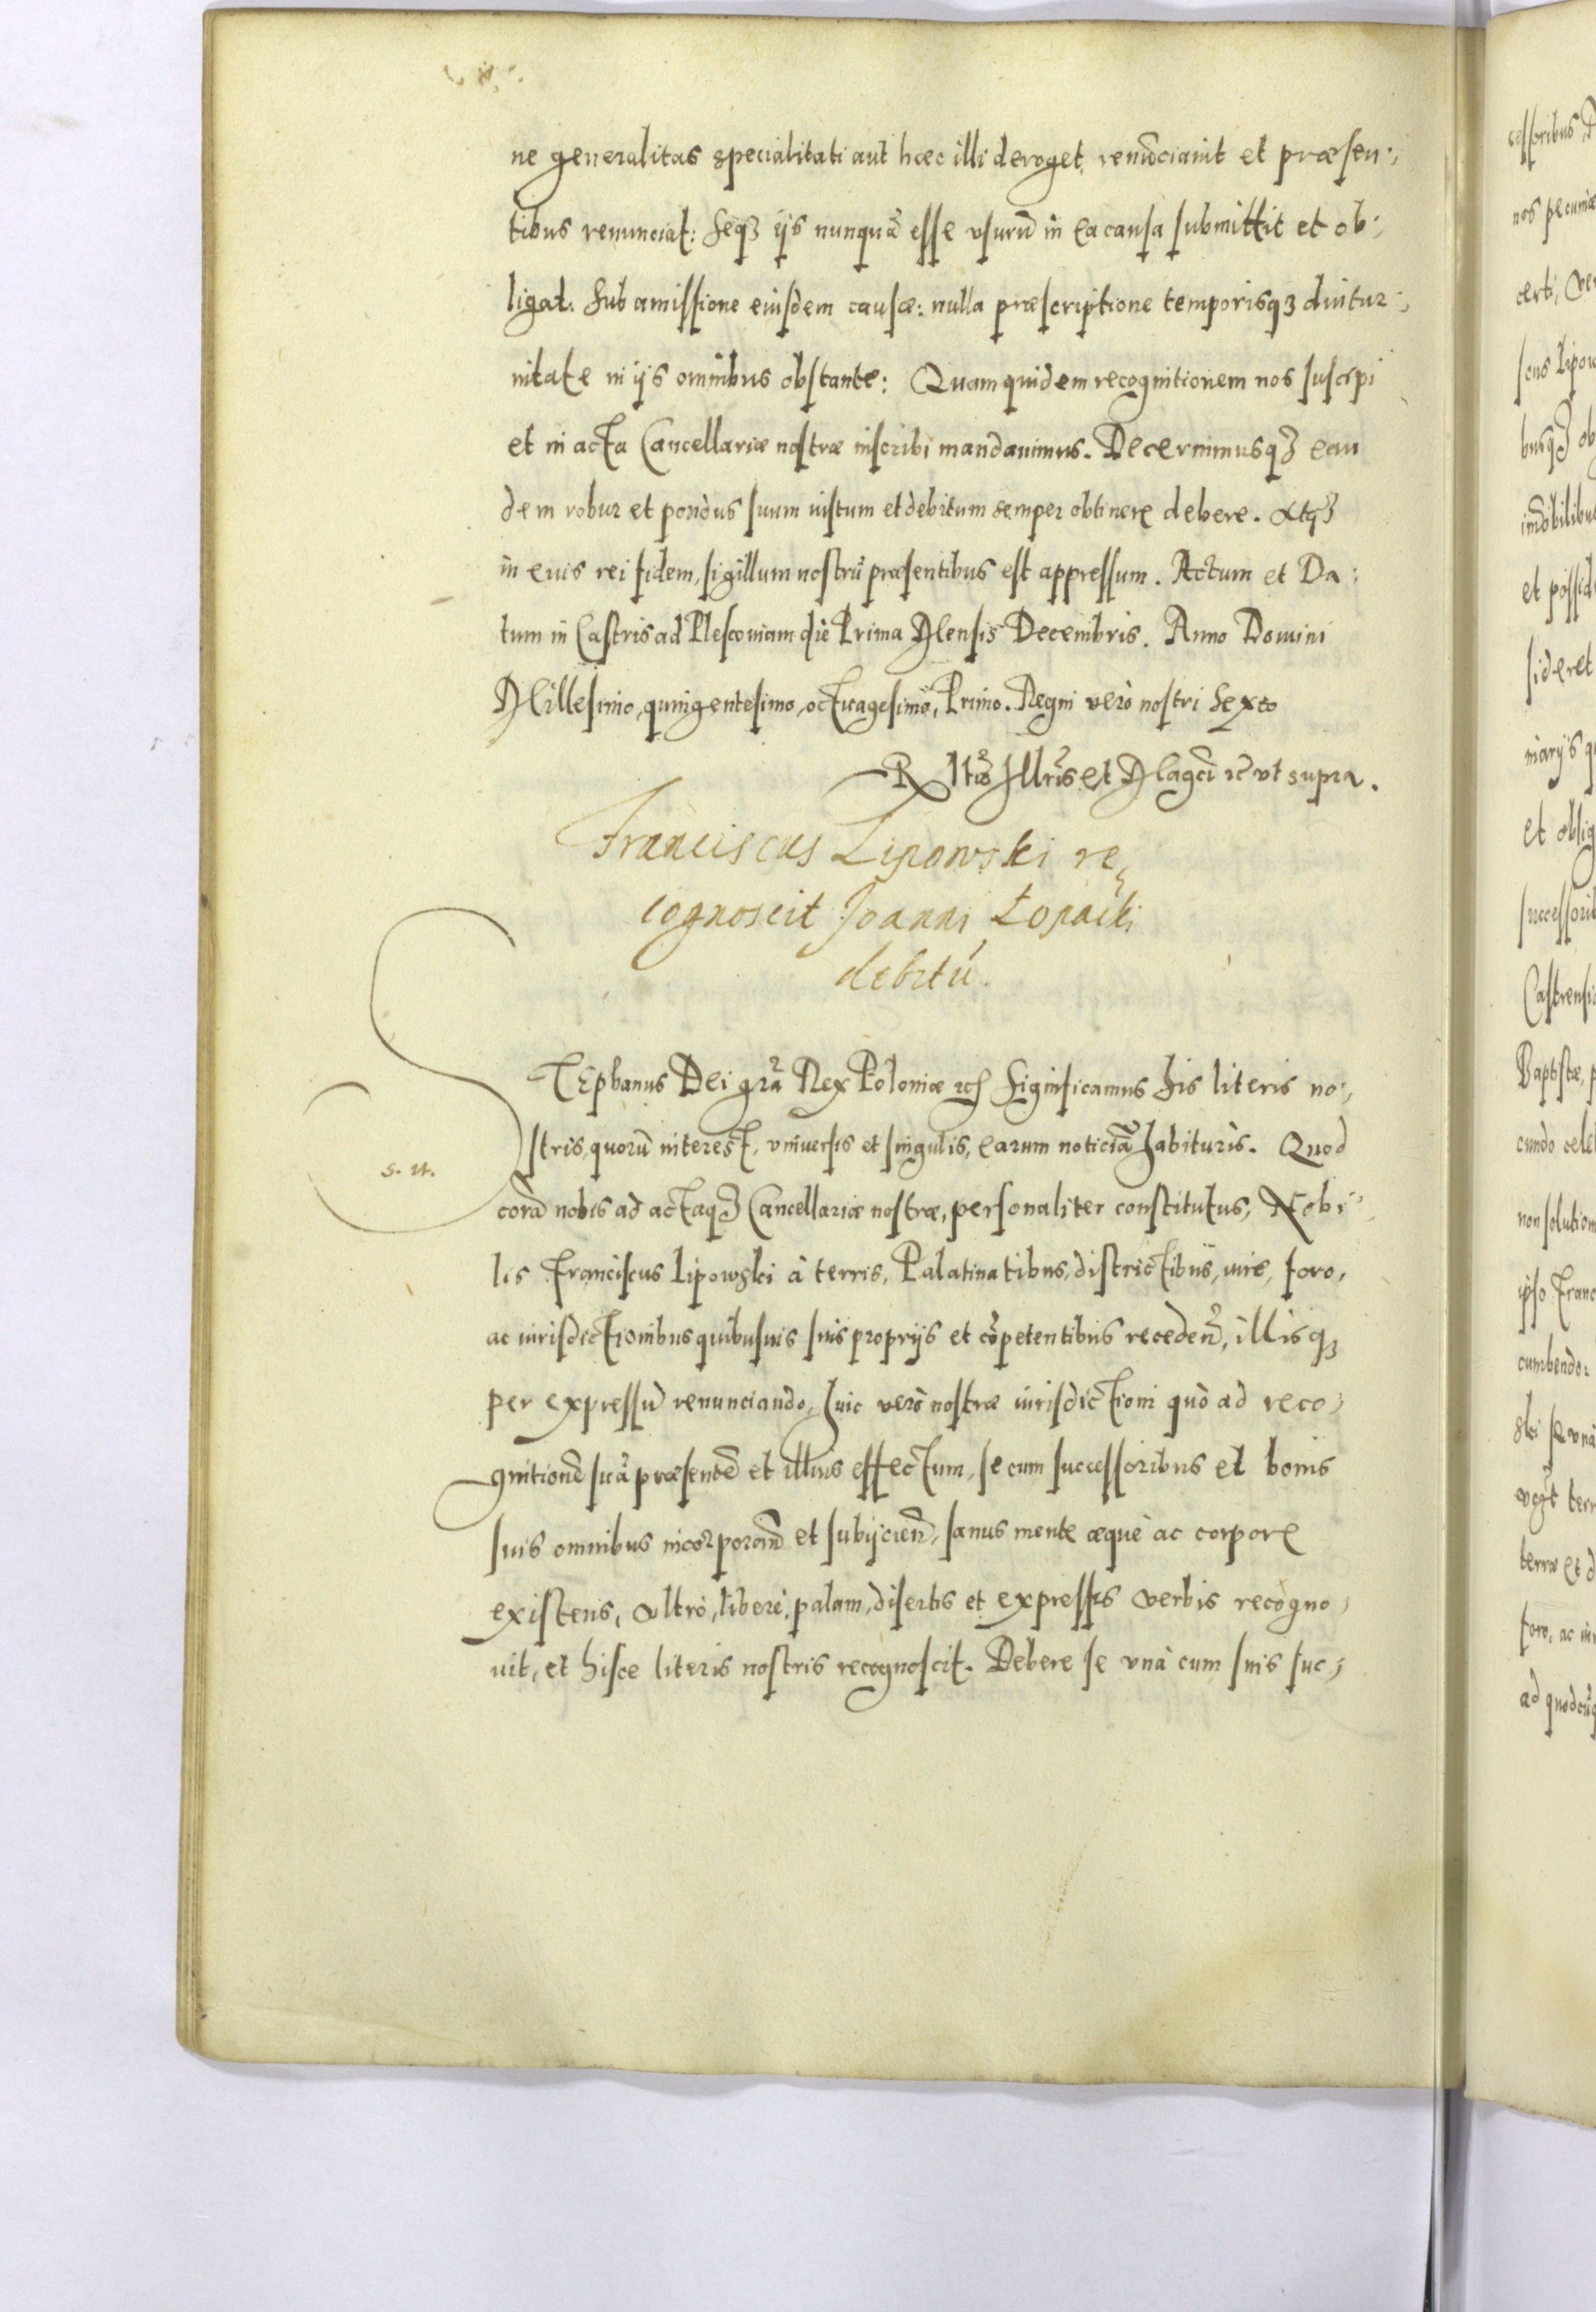 ne generalitas specialitati aut hæc illi deroget, renũciauit et præsen:,
tibus renunciat: Seqȝ ijs nunquã esse vsurũ in ea causa submittit et ob:,
ligat. Sub amissione eiusdem causæ: nulla præscriptione temporisqȝ diutur:,
nitate in ijs omnibus obstante: Quam quidem recognitionem nos suscepi
et in acta Cancellariæ nostræ inscribi mandauimus. Decernimusqȝ ean
dem robur et pondus suum iustum et debitum semper obtinere debere. Atqȝ
in euis rei fidem, sigillum nostrũ præsentibus est appressum. Actum et Da:
tum in Castris ad Plescouiam die Prima Mensis Decembris. Anno Domini
Millesimo, quingentesimo, octuagesimo, Primo. Regni verò nostri Sexto
Rtio Illris et Magci rc vt supra.
Franciscus Lipowski re,
cognoscit Joanni Łopacki
debitũ.
STEphanus Dei gra Rex Poloniæ rc Significamus his literis no:,
stris, quorũ interest, vniuersis et singulis, earum noticiã habituris. Quod
s. n.
corã nobis ad actaqȝ Cancellariæ nostræ, personaliter constitutus, Nobi:,
lis Franciscus Lipowski à terris, Palatinatibus, districtibus, iure, foro,
ac iurisdictionibus quibusuis suis proprijs et cõpetentibus receden̄, illisqȝ
per expressũ renunciando, huic verò nostræ iurisdictioni quò ad reco,
gnitionẽ suã præsentẽ et illius effectum, se cum successoribus et bonis
suis omnibus incorporan̄ et subijcien̄, sanus mente æquè ac corpore
existens, vltrò, liberè, palam, disertis et expressis verbis recogno,
uit, et hisce literis nostris recognoscit. Debere se vnà cum suis suc,